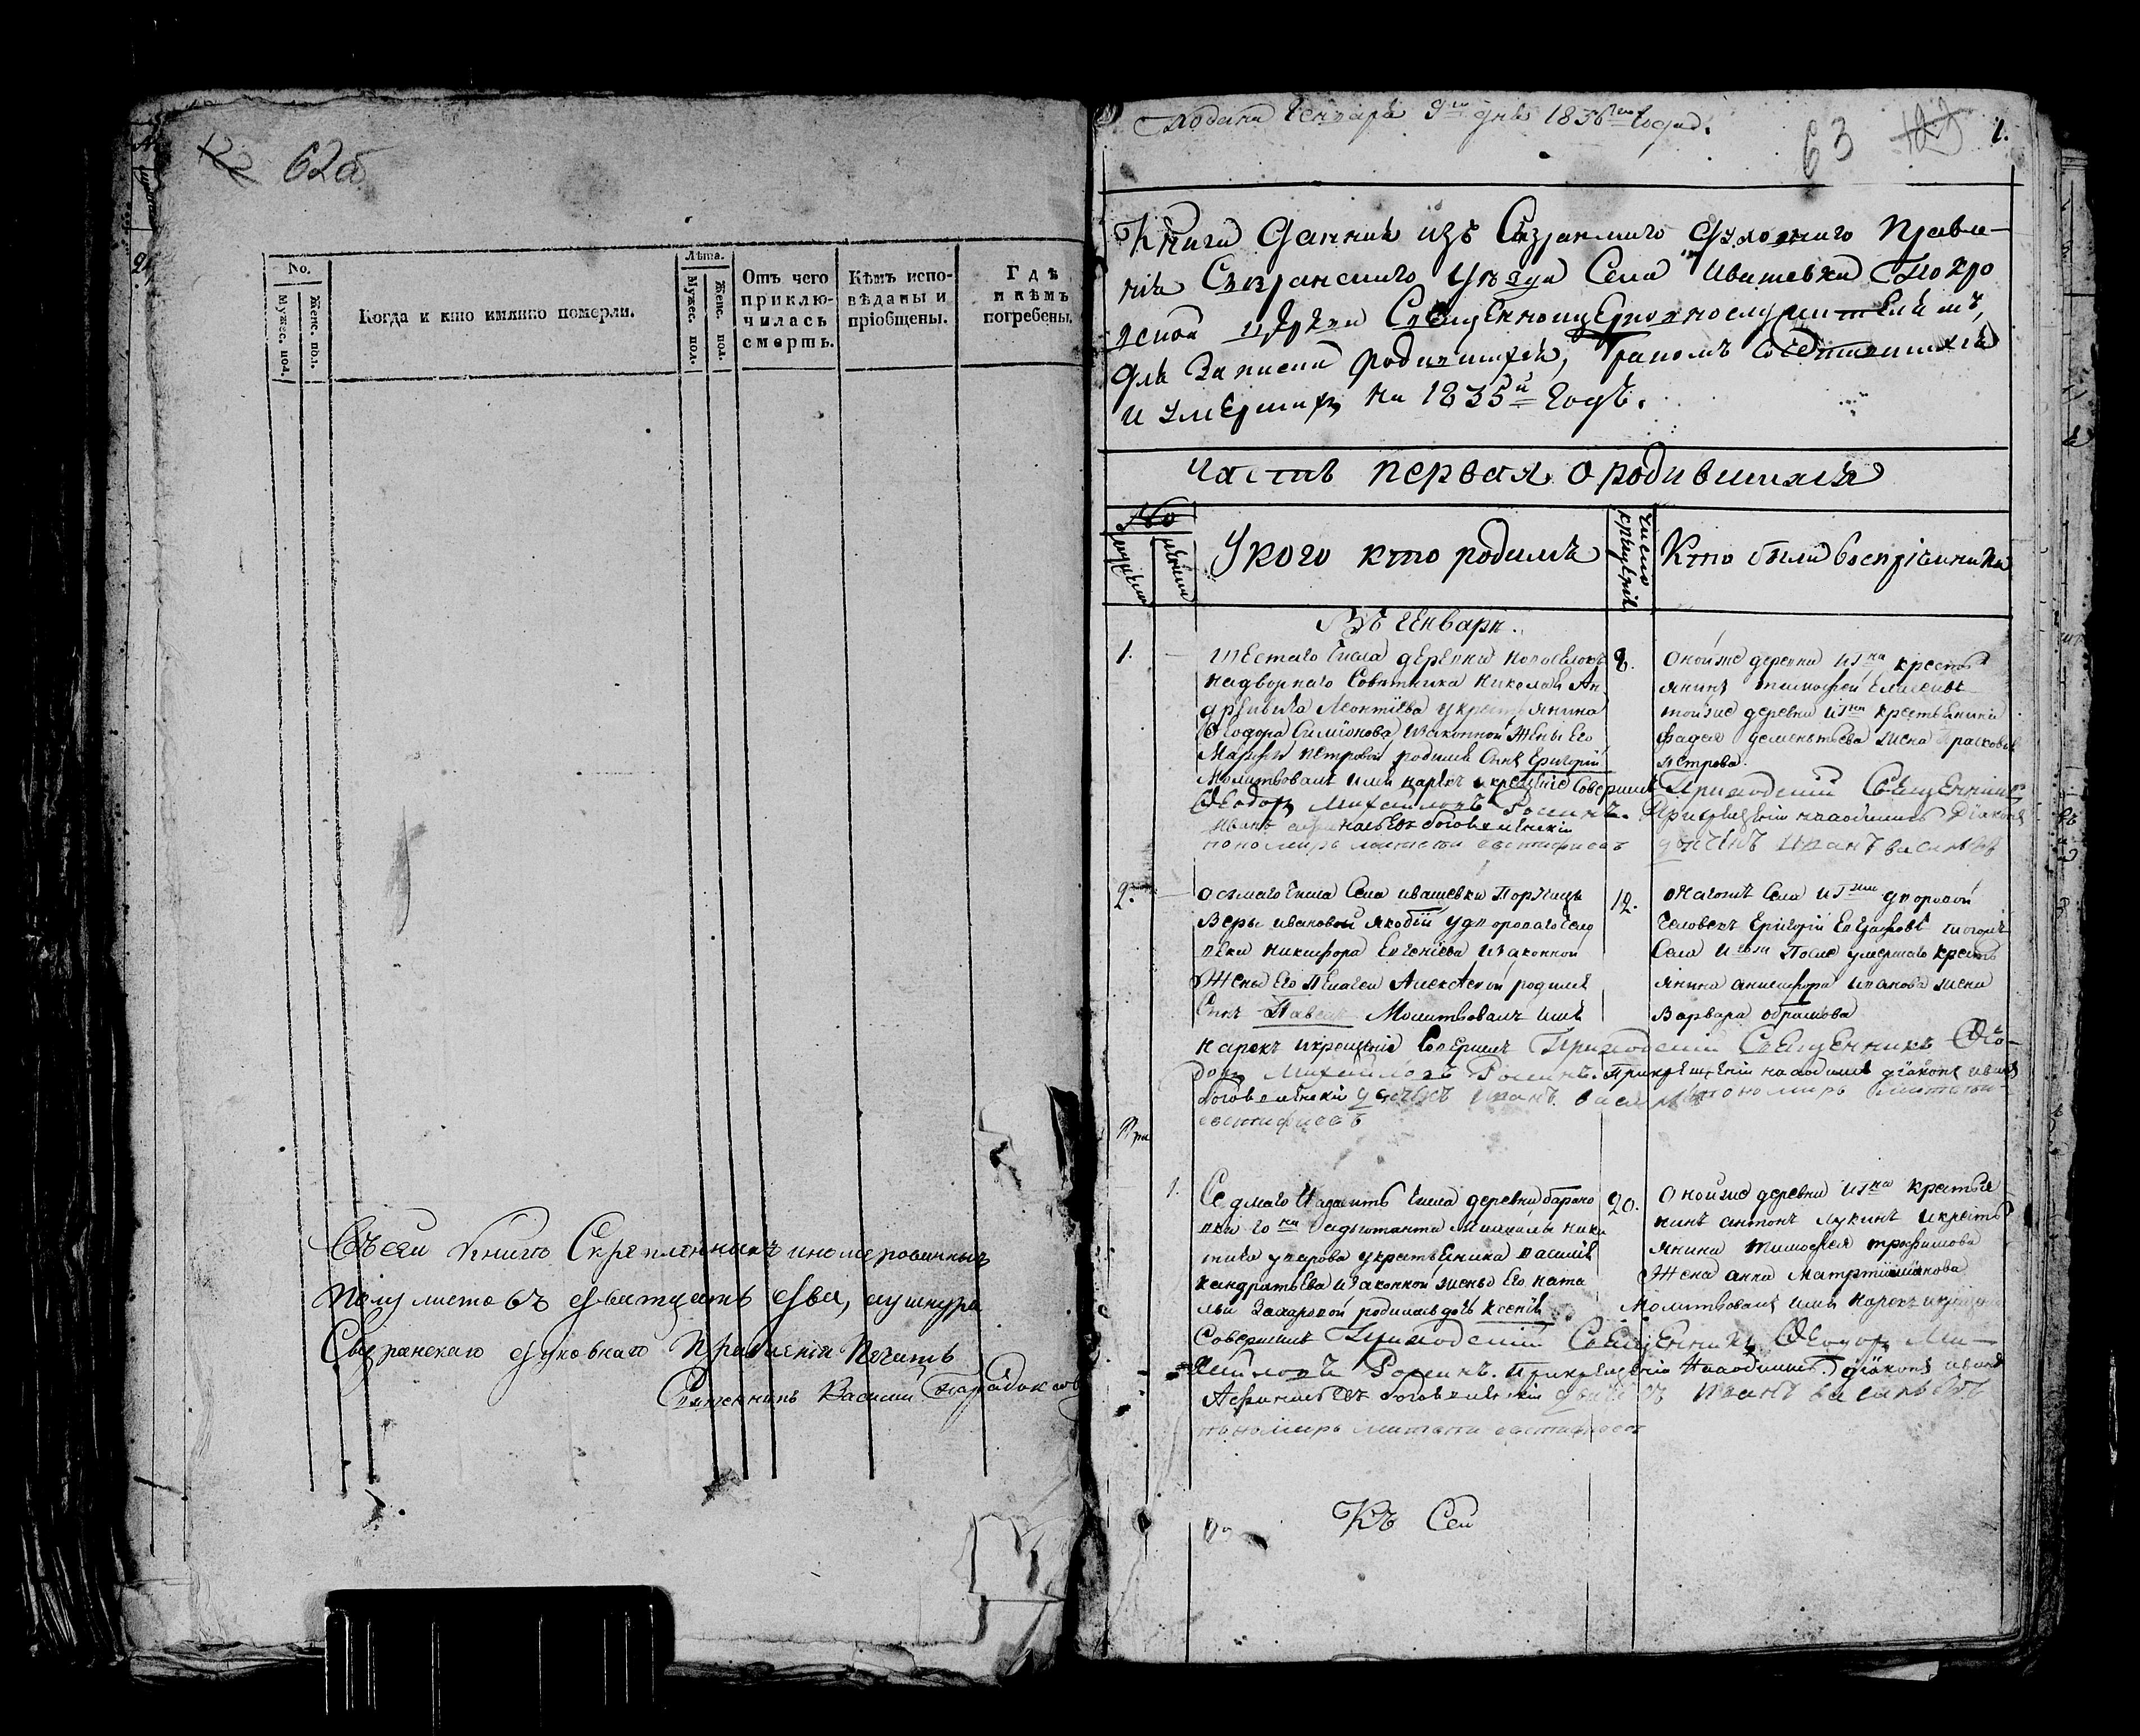 122 62об
No.
Мужес. пол.
Женс. пол.
Когда и кто имянно померли.
Лѣта.
Мужес. пол.
Женс. пол.
Отъ чего
приклю-
чилась
смерть.
Кѣмъ испо-
вѣданы и
пріобщены.
Гдѣ
и кѣмъ
погребены.
Въ сей книге Скрепленныхъ и номерованныхъ
полулистовъ дватцать два, а у шнура
Сызранскаго духовнаго правленія печать
Священникъ Василий
Подана Генваря 9го дня 1836го года.
63 123 1.
Книга Данная изъ Сызранскаго духовнаго Правле-
нія Сызранскаго уѣзда Села Ивашевки Покро
вской церкви Священноцерковнослужителямъ,
для Записки родившихся, бракомъ Сочетавшихся
и умершихъ на 1835й годъ.
Часть первая о родившихся
No
мужеска
женска
У кого кто родился
число крещенія
Кто были воспріемники
Въ Генваре.
1.
шестаго числа деревни
надворнаго Советника Николая Ан
дреевича Леонтьева у крестьянина
Феодора Симионова и законной жены его
Марфы Петровой родился Сынъ Григорій
Молитвовалъ имя нарекъ и крещение Совершилъ Приходский Священникъ
Феодоръ Михайловъ Росинъ. При крещеніи находились Діаконъ
Иванъ Афанасьевъ Боговленскій
пономарь евстифеевъ дьячекъ Иванъ Васильевъ
8.
Оной же деревни и гна кресть
янинъ Тимофей Елисеевъ
той же деревни и гна крестьянина
Фадея Дементьева жена Прасковья
Петрова.
2.
осьмаго числа Села Ивашевки Порутчицы
Веры Ивановой Якобій у двороваго чело
века Никифора Евгеніева и законной
Жены его Пелагеи Алексеевой родился
Сынъ Павелъ Молитвовалъ имя
нарекъ и крещеніе Совершилъ Приходский Священникъ Фео-
доръ Михайловъ Росинъ. При крещеніи находились діаконъ Иванъ
Боговленскій дьячекъ Иванъ Васильевъ пономарь
евстифеевъ
12.
Тогожъ Села и гжи дворовой
человекъ Григорій тогожъ
Села и гжи После умершаго кресть
янина Иванова жена
Варвара
1.
Седмаго Надесять числа деревни Барано
вки гна адъютанта Михаилы Ники
тича Уварова у крестьянина Василія
Кандратьева и законной жены его Ната
льи Захаровой родилась дочь Ксенія
Молитвовалъ имя нарекъ и крещеніе
Совершилъ Приходский Священникъ Феодоръ Ми-
хайловъ Росинъ. При крещеніи находились діаконъ Иванъ
Афанасьевъ Боговленскій дьячекъ Иванъ Васильевъ
пономарь евстифеевъ
20.
Оной же деревни и гна крестья
нинъ Антонъ Лукинъ и кресть
янина Тимофея Трофимова
Жена Анна
Къ Сей